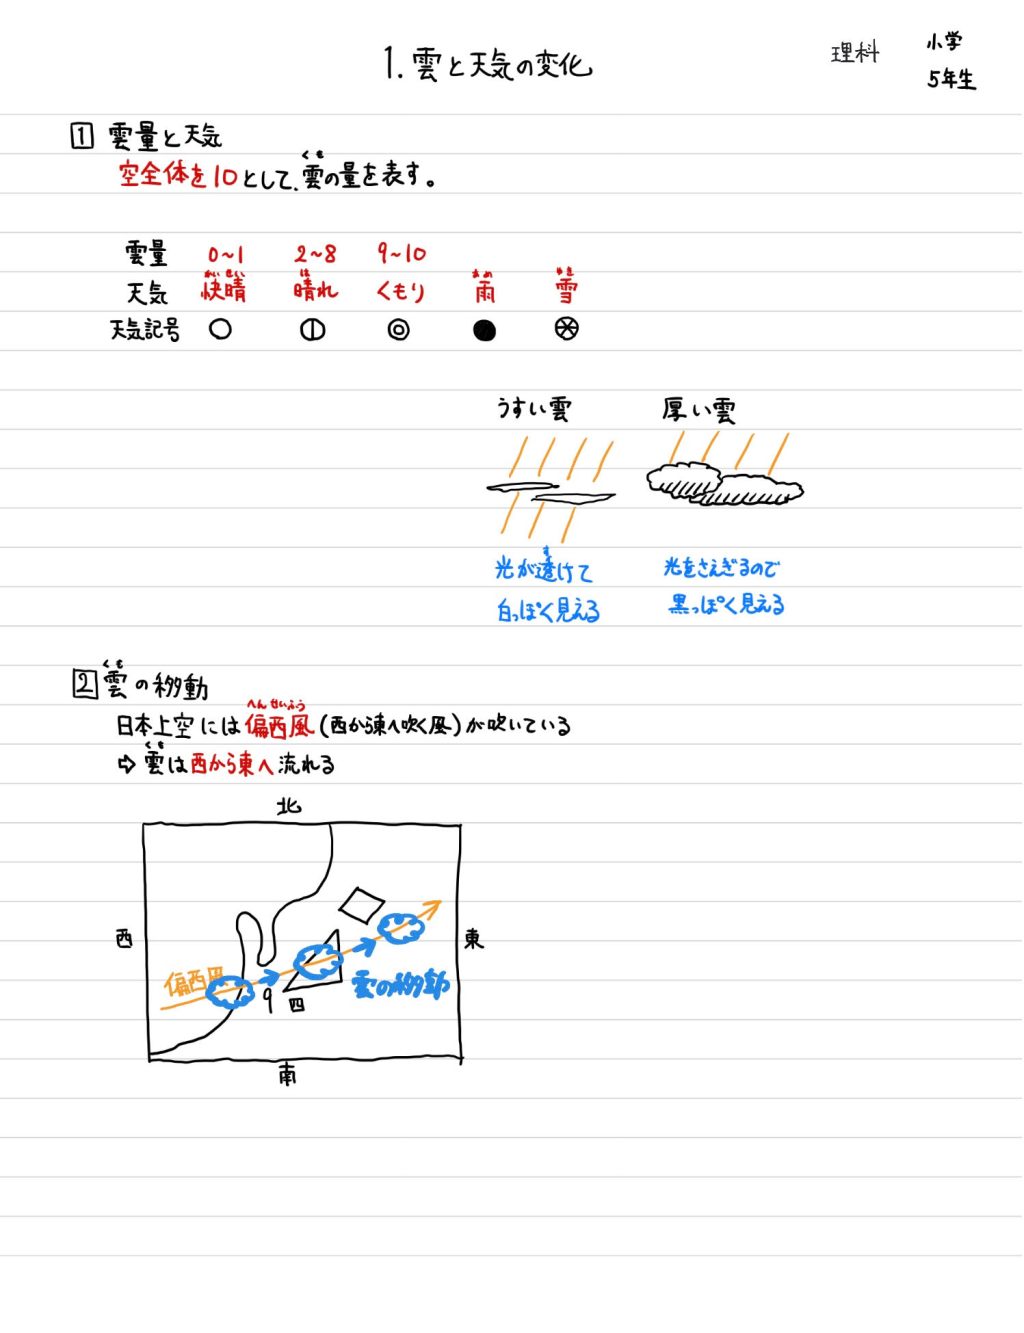 1. 雲と天気の変化
理科
小学
5年生
1 雲量と天気
くも
空全体を10として、雲の量を表す。
雲量 0~1 2~8 9~10
かいせい は あめ ゆき
天気 快晴 晴れ くもり 雨 雪
天気記号
うすい雲 厚い雲
す
光が透けて
白っぽく見える
光をさえぎるので
黒っぽく見える
くも
2 雲の移動
へんせいふう
日本上空には偏西風(西から東へ吹く風)が吹いている
くも
⇨ 雲は西から東へ流れる
北
西
東
偏西風
雲の移動
九 四
南